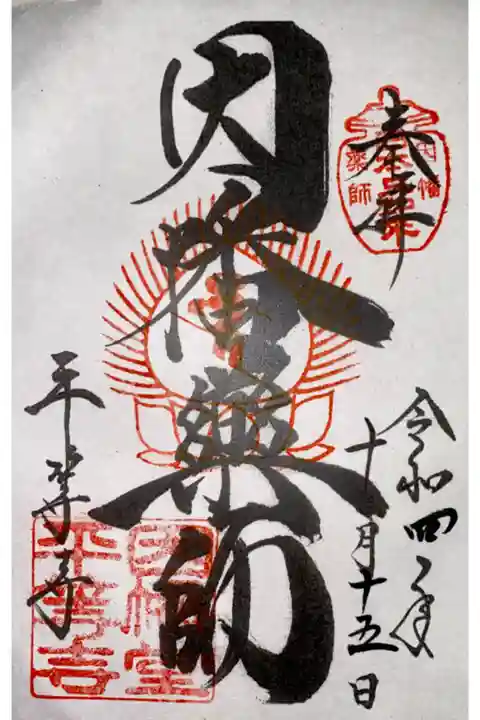 奉拝
因幡薬師
令和四年
十月十五日
因幡薬師
平等寺
因幡堂
平等寺